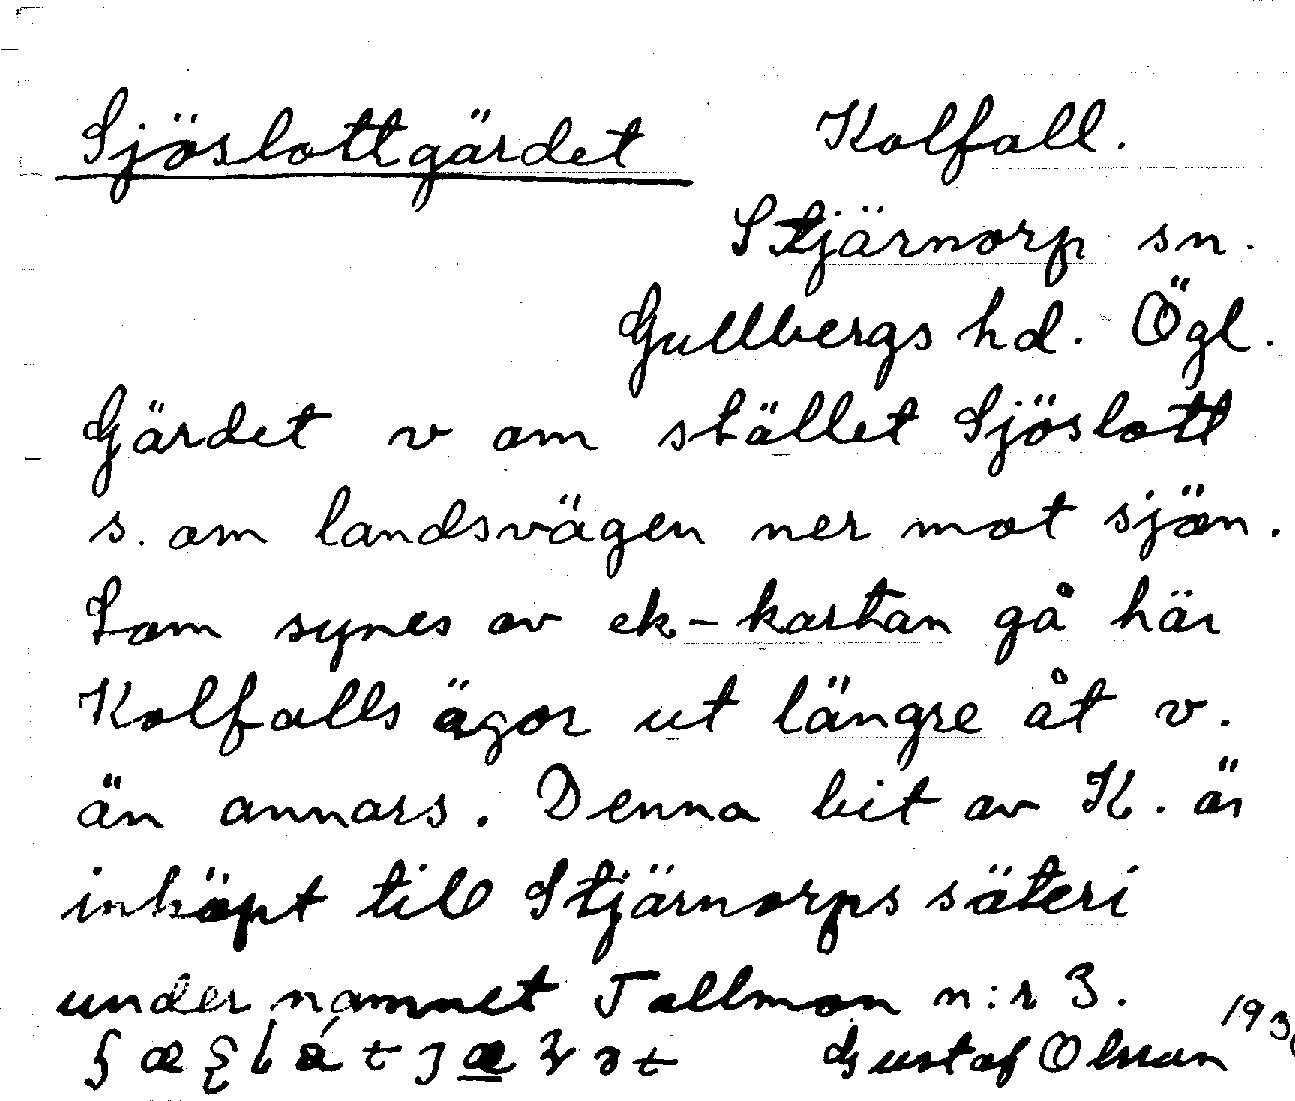 Sjöslottgärdet Kolfall.
Stjärnorp sn.
Gullbergs hd. Ögl.
Gärdet v om stället Sjöslott
s. om landsvägen ner mot sjön.
Som synes av ek-kartan gå här
Kolfalls ägor ut längre åt v.
än annars. Denna bit av K. är
inköpt till Stjärnorps säteri
under namnet Tallmon n:r 3.
Gustaf Olsson